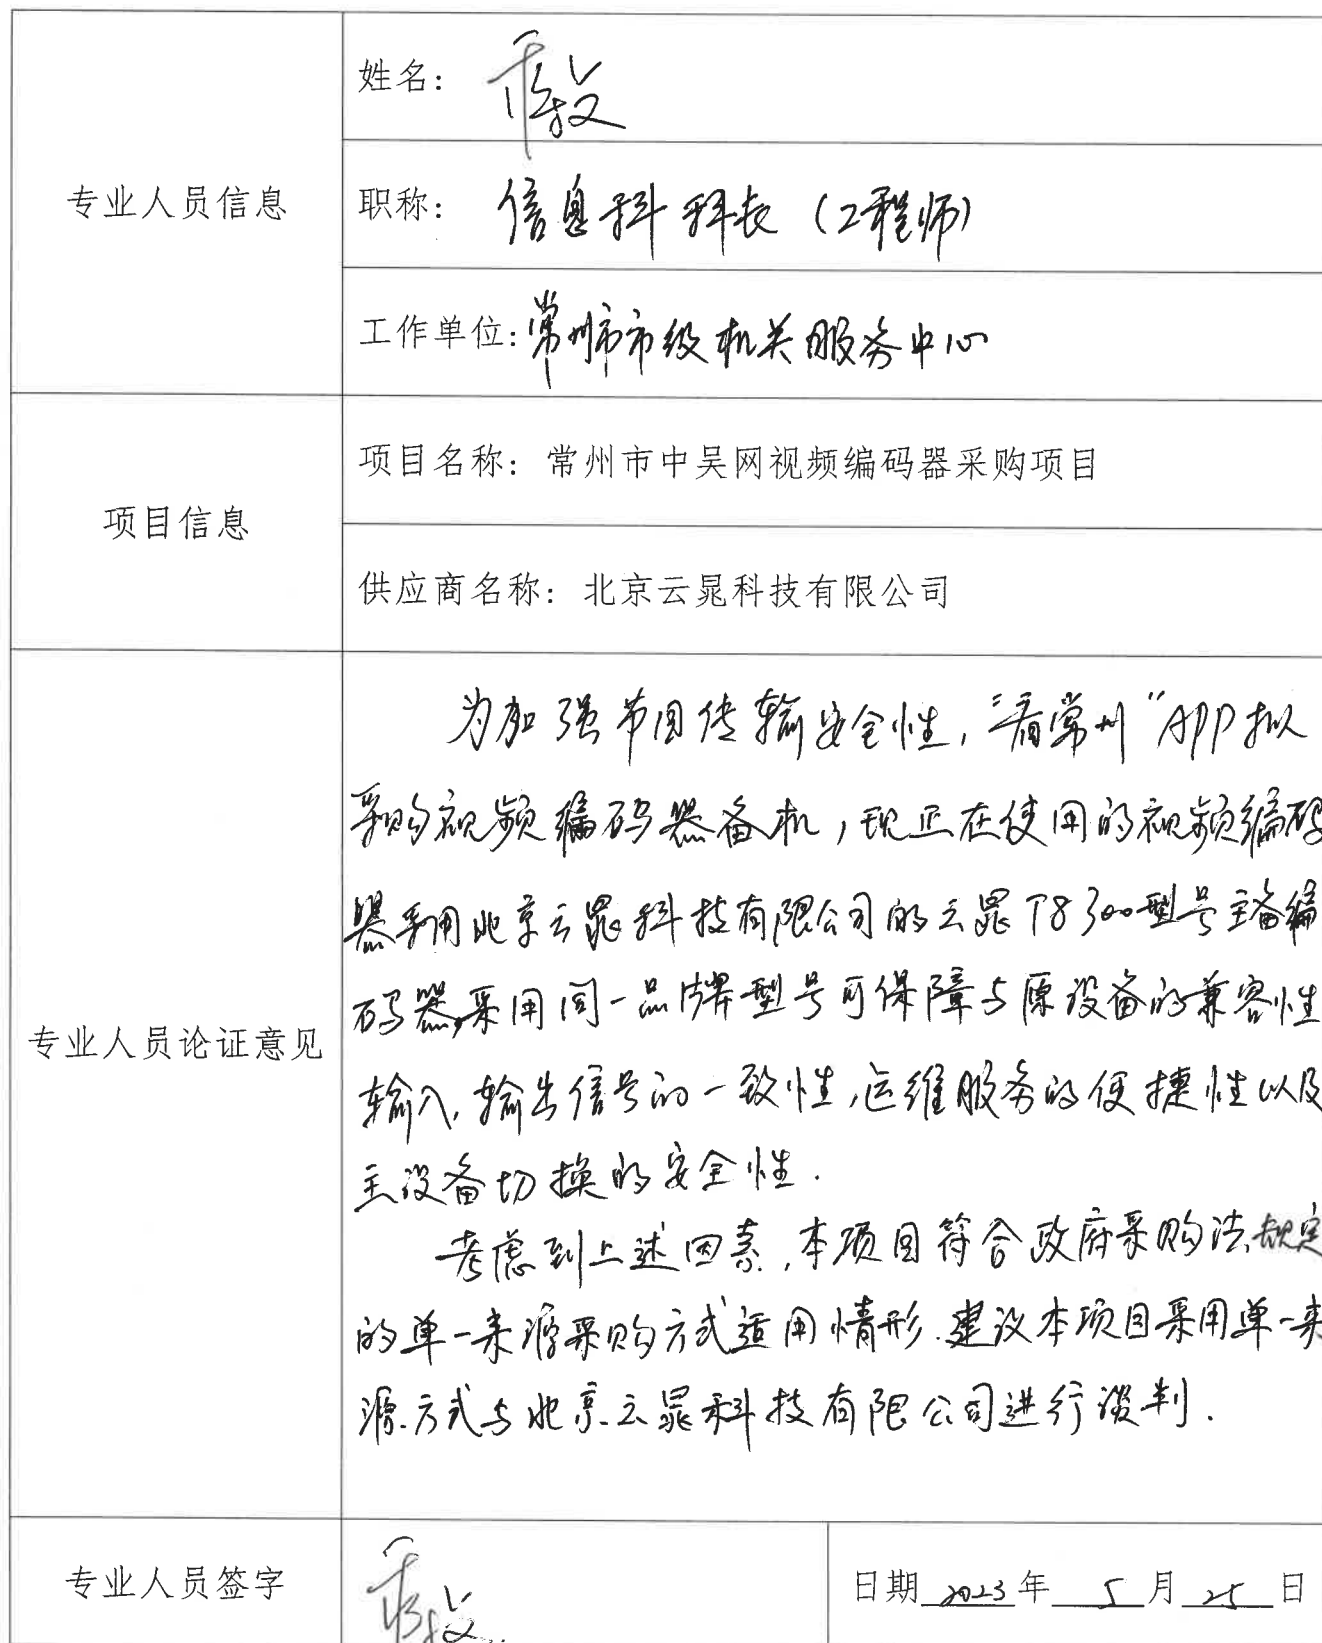 专业人员信息
姓名：
职称： 信息科科长（工程师）
工作单位：常州市市级机关服务中心
项目信息
项目名称：常州市中吴网视频编码器采购项目
供应商名称：北京云晁科技有限公司
专业人员论证意见
为加强节目传输安全性，“看常州”APP拟
采购视频编码器备机，现正在使用的视频编码
器采用北京云晁科技有限公司的云晁T8300型号主备编
码器，采用同一品牌型号可保障与原设备的兼容性
输入、输出信号的一致性，运维服务的便捷性以及
主设备切换的安全性.
考虑到上述因素，本项目符合政府采购法规定
的单一来源采购方式适用情形.建议本项目采用单一来
源方式与北京云晁科技有限公司进行谈判.
专业人员签字
日期 2023 年 5 月 25 日